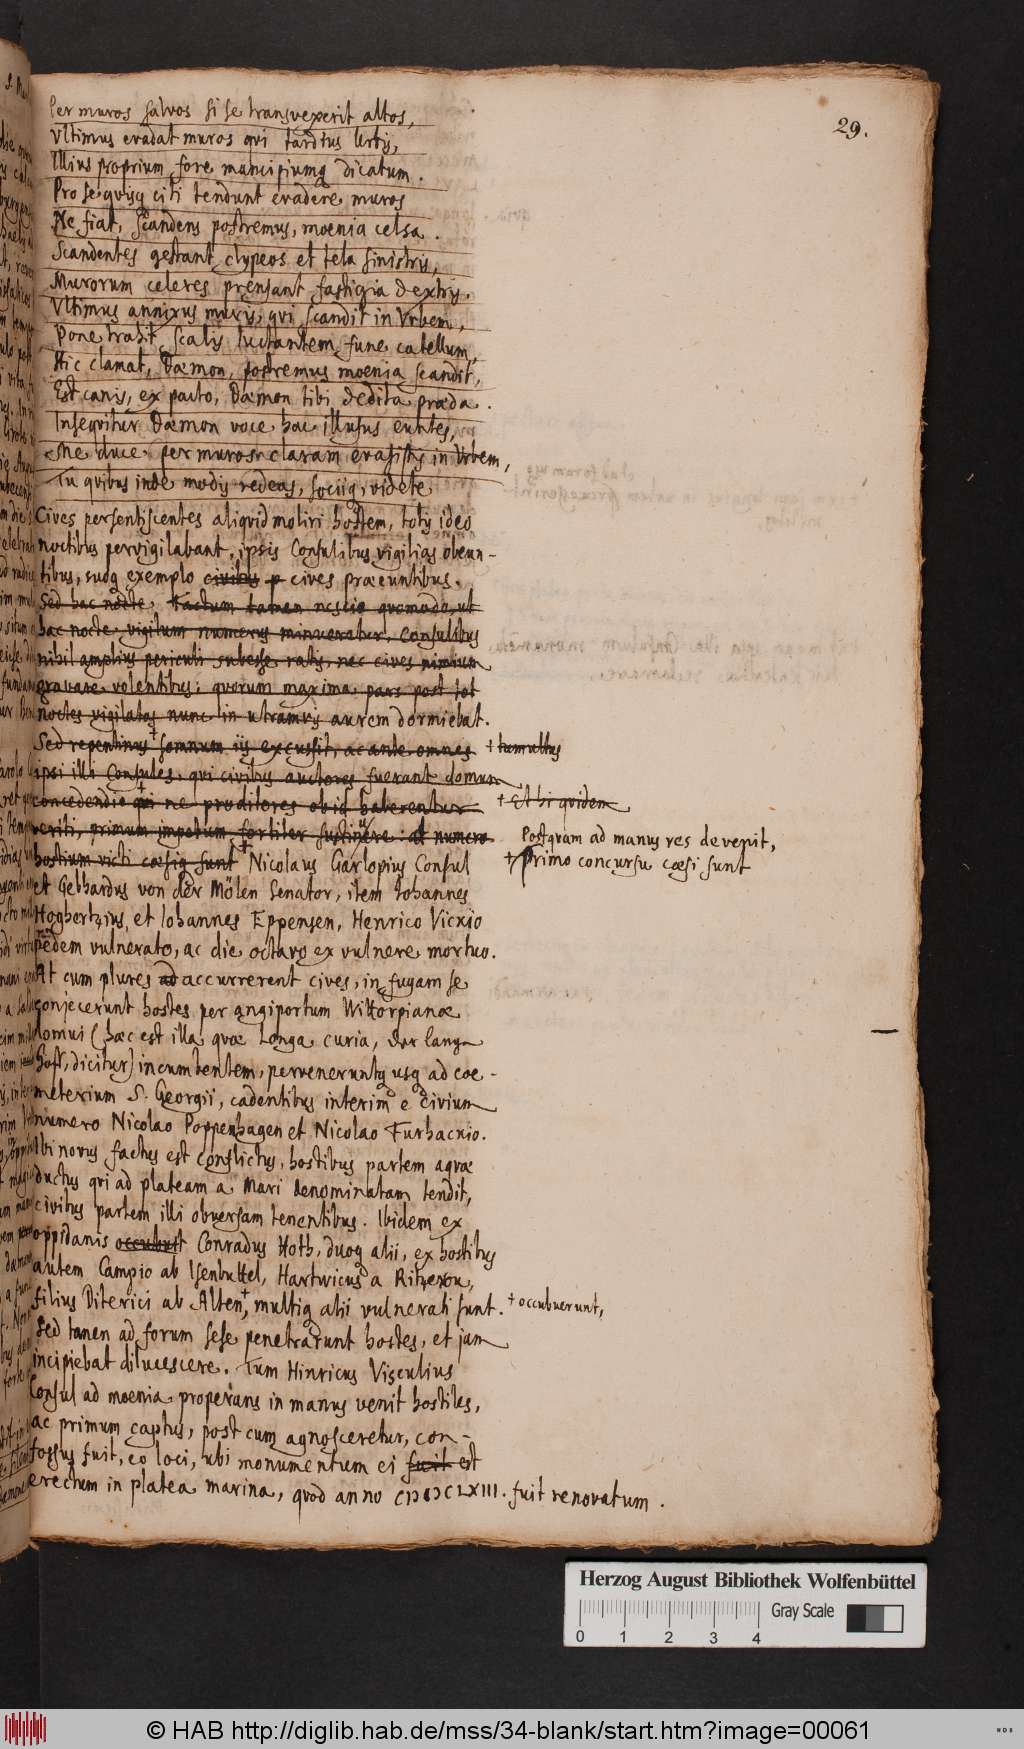 29.
Per muros salvos si se transvexerit altos,
Vltimus evadat muros qvi tardius Urbis,
Illius proprium fore mancipiumq dicatum.
Pro se qvisq citi tendunt evadere muros
Ne fiat, scandens postremus, moenia celsa.
Scandentes gestant clypeos et tela sinistris,
Murorum celeres prensant fastigia dextris.
Vltimus annixus muris, qvi scandit in Vrbem,
Pone trahit scalis luctantem fune catellum,
Hic clamat, Dæmon, postremus moenia scandit,
Est canis, ex pacto, Dæmon tibi dedita præda.
Inseqvitur Dæmon voce hac illusus euntes,
Me duce per muros claram evasistis in Vrbem,
Tu qvibus inde modis redeas, sociiq, videte
Cives persentiscentes aliqvid moliri hostem, totis ideo
noctibus pervigilabant, ipsis Consulibus vigilias obeun-
tibus, suoq exemplo civibus p cives præeuntibus.
Sed hac nocte, factum tamen nescio qvomodo, ut
hac nocte vigilum numerus minueretur, Consulibus
nihil amplius periculi subesse ratis, nec cives nimium
gravare volentibus: qvorum maxima pars post tot
noctes vigilatas nunc in utramvis aurem dormiebat.
Sed repentinus † somnum iis excussit, ac ante omnes † tumultus
ipsi illi Consules, qvi civibus auctores fuerant domum
concedendi † qvi ne proditores obiq haberentur † Et hi qvidem
veriti, primum impetum fortiter sustinere: at numero
hostium victi cæsiq sunt † Nicolaus Garlopius Consul
Postqvam ad manus res devenit,
† primo concursu cæsi sunt
et Gebhardus von der Mölen Senator, item Iohannes
Hogbertzius et Iohannes Eppensen, Henrico Vicxio
pedem vulnerato, ac die octavo ex vulnere mortuo.
At cum plures ad accurrerent cives, in fugam se
conjecerunt hostes per angiportum Wittorpianæ
domui (hæc est illa qvæ Longa curia, der lange
Hoff, dicitur) incumbentem, perveneruntq usq ad coe-
meterium S. Georgii, cadentibus interim e civium
numero Nicolao Poppenhagen et Nicolao Furhacxio.
Ibi novus factus est conflictus, hostibus partem aqvæ
ductus qvi ad plateam a Mari denominatam tendit,
civibus partem illi obversam tenentibus. Ibidem ex
oppidanis occubuit Conradus Hoth, duoq alii, ex hostibus
autem Campio ab Isenbuttel, Hartwicus a Ritzerou,
filius Diterici ab Alten, † multiq alii vulnerati sunt. † occubuerunt,
Sed tamen ad forum sese penetrarunt hostes, et jam
incipiebat dilucescere. Tum Hinricus Visculius
Consul ad moenia properans in manus venit hostiles,
ac primum captus, post cum agnosceretur, con-
fossus fuit, eo loci, ubi monumentum ei fuit est
erectum in platea marina, qvod anno CIↃIↃCLXIII. fuit renovatum.
Herzog August Bibliothek Wolfenbüttel
Gray Scale
0 1 2 3 4
© HAB http://diglib.hab.de/mss/34-blank/start.htm?image=00061